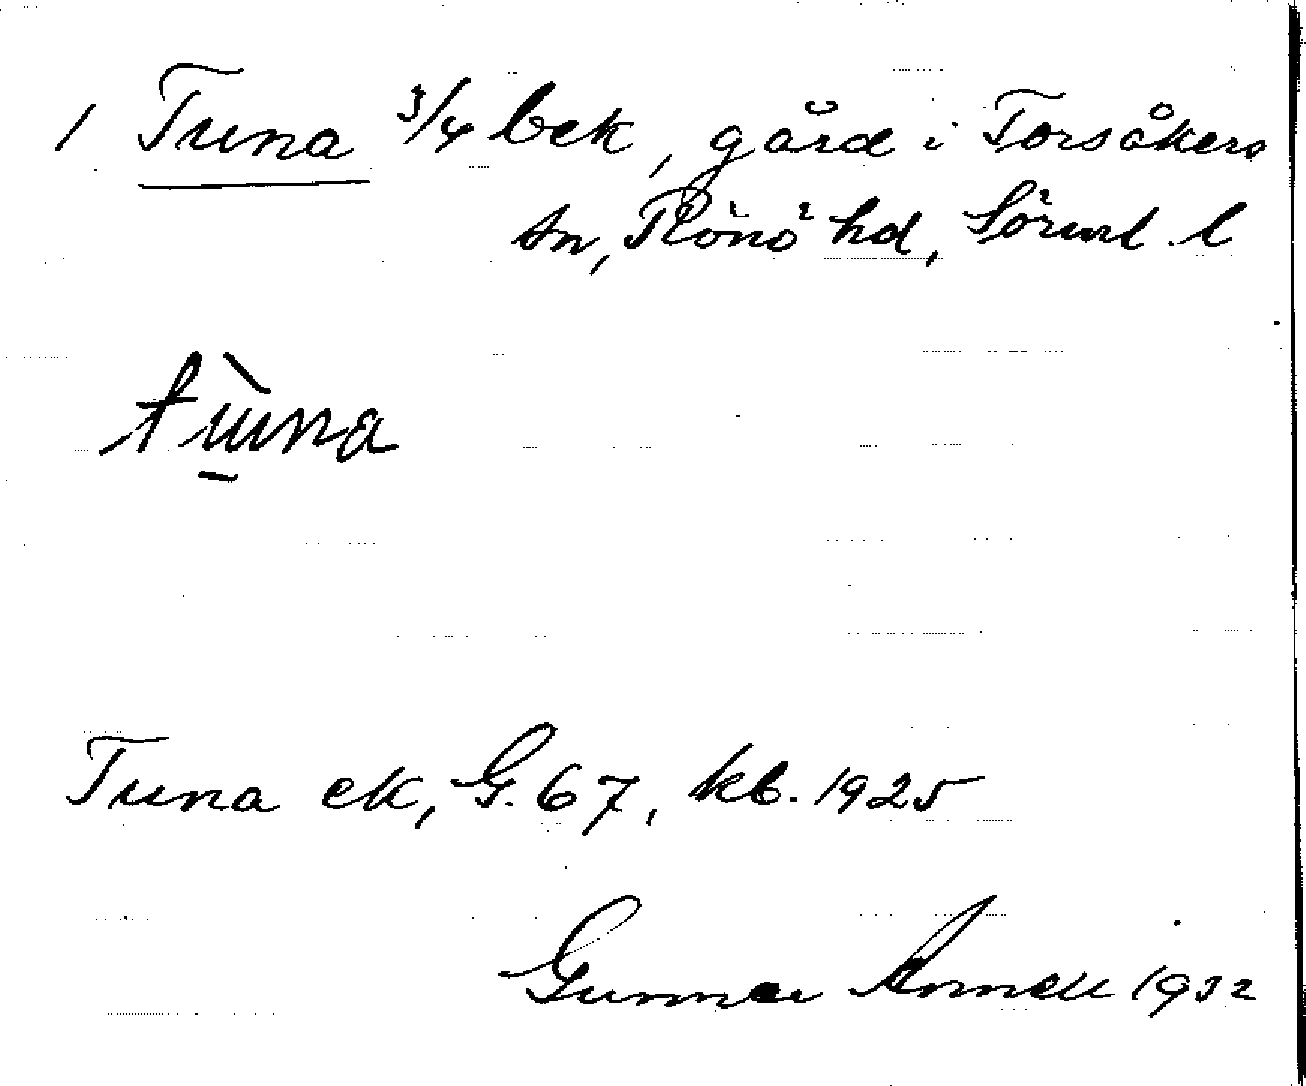 1 Tuna 3/4 bek, gård i Torsåkers
sn, Rönö hd, Sörml l
tùna
Tuna ek, G. 67, kb. 1925
Gunnar Annell 1932